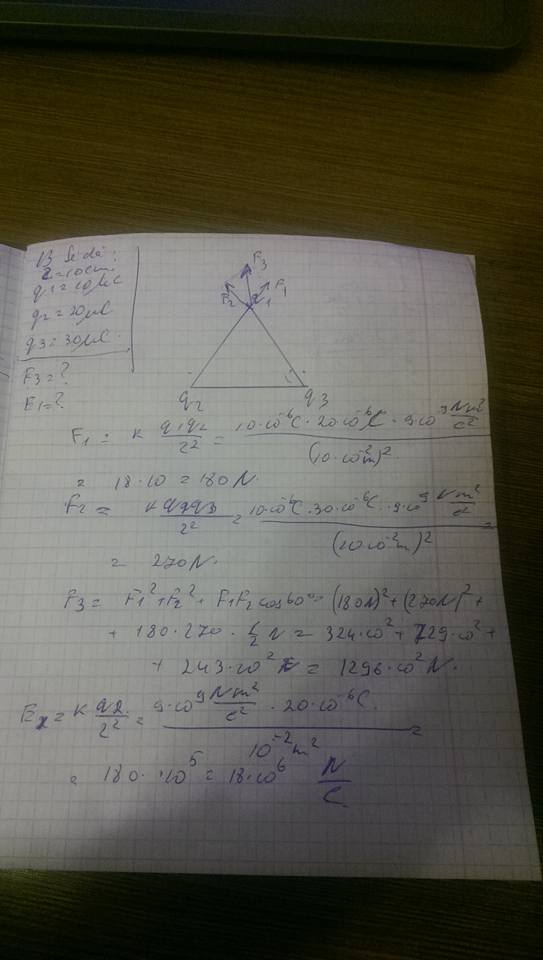 13 Se dă:
r=10cm.
q1=10μC
q2=20μC
q3=30μC.
F3=?
E1=?
F3
F2
F1
q1
q2
q3
F1 = k q1q2/r² = 10·10⁻⁶C · 20·10⁻⁶C · 9·10⁹ Nm²/C² / (10·10⁻²m)²
= 18·10 = 180N.
F2 = k q1q3/r² = 10·10⁻⁶C·30·10⁻⁶C·9·10⁹ Nm²/C² / (10·10⁻²m)² =
= 270N.
F3 = F1²+F2²+F1F2cos60° = (180N)²+(270N)²+
+ 180·270·½N = 324·10²+729·10²+
+ 243·10² = 1296·10²N.
E = k q2/r² = 9·10⁹ Nm²/C² · 20·10⁻⁶C. / 10⁻²m² =
= 180··10⁵ = 18·10⁶ N/C